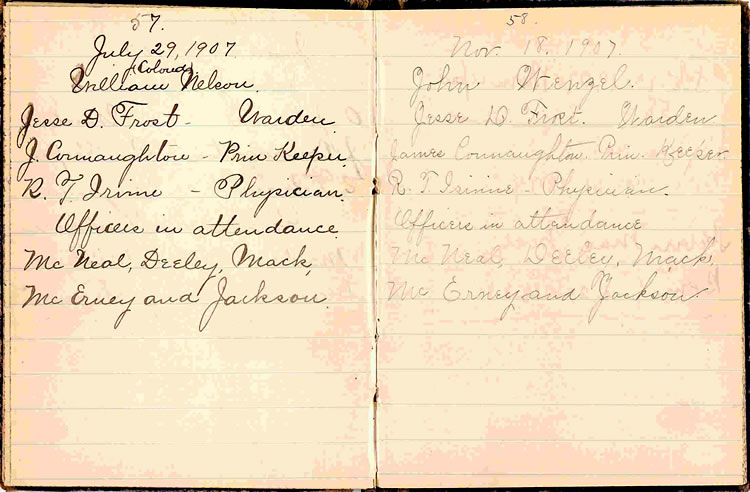 57.
July 29, 1907
(Colored)
William Nelson.
Jesse D. Frost - Warden
J Connaughton - Prin Keeper.
R. T. Irvine - Physician.
Officers in attendance
Mc Neal, Deeley, Mack,
Mc Erney and Jackson.
58.
Nov. 18, 1907.
John Wenzel.
Jesse D. Frost. Warden
James Connaughton Prin. Keeper.
R. T Irvine - Physician.
Officers in attendance
Mc Neal, Deeley, Mack,
Mc Erney and Jackson.